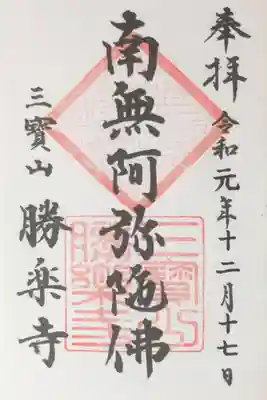 奉拝 令和元年十二月十七日
南無阿弥陁佛
三寳山 勝楽寺
三寳山
勝楽寺